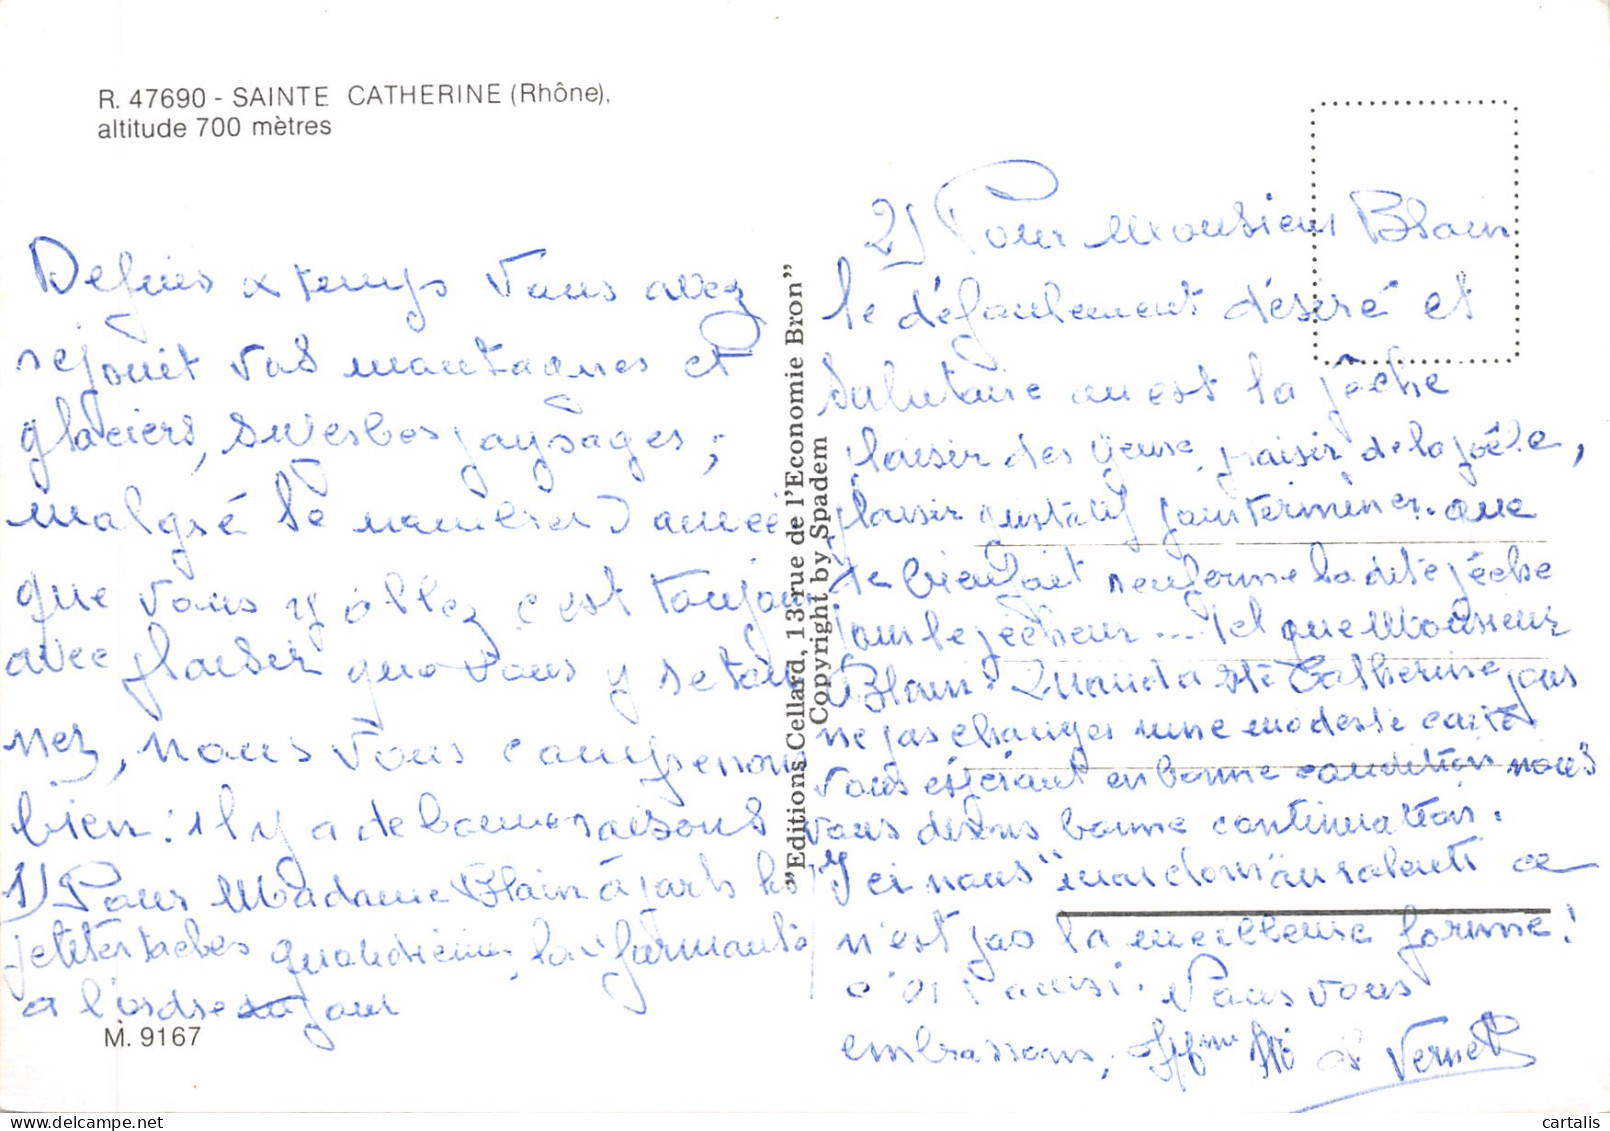 R. 47690 - SAINTE CATHERINE (Rhône),
altitude 700 mètres
Depuis x temps vous avez
rejoint vos montagnes et
glaciers, superbes paysages ;
malgré le nombre d'année
que vous y allez c'est toujours
avec plaisir que vous y retour
nez, nous vous comprenons
bien : il y a de bonnes raisons
1) Pour Madame Blain à part les
petites taches quotidiennes, la
à l'ordre du jour
M. 9167
"Editions Cellard, 13 rue de l'Economie Bron"
Copyright by Spadem
2) Pour Monsieur Blain
le défoulement désiré et
salutaire qu'est la pêche
plaisir des yeux, plaisir de la poêle,
plaisir gustatif pour terminer. que
de bienfait renferme la dite pêche
pour le pêcheur ... Tel que Monsieur
Blain. Quand à Ste Catherine pour
ne pas changer une modeste carte
vous espérant en bonne condition nous
vous disons bonne continuation.
Ici nous "mai dom" au ralenti ce
n'est pas la meilleure forme !
Nous vous
embrassons, Mme Mr Vernet
cartalis